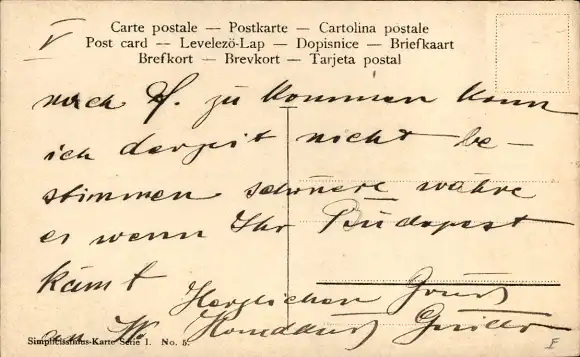 V
Carte postale — Postkarte — Cartolina postale
Post card — Levelező-Lap — Dopisnice — Briefkaart
Brefkort — Brevkort — Tarjeta postal
nach H. zu kommen kann
ich derzeit nicht be-
stimmen schönere währe
es wenn Ihr Budapest
kämt
Herzlichen Gruß
an
Simplicissimus-Karte Serie I. No. 5.